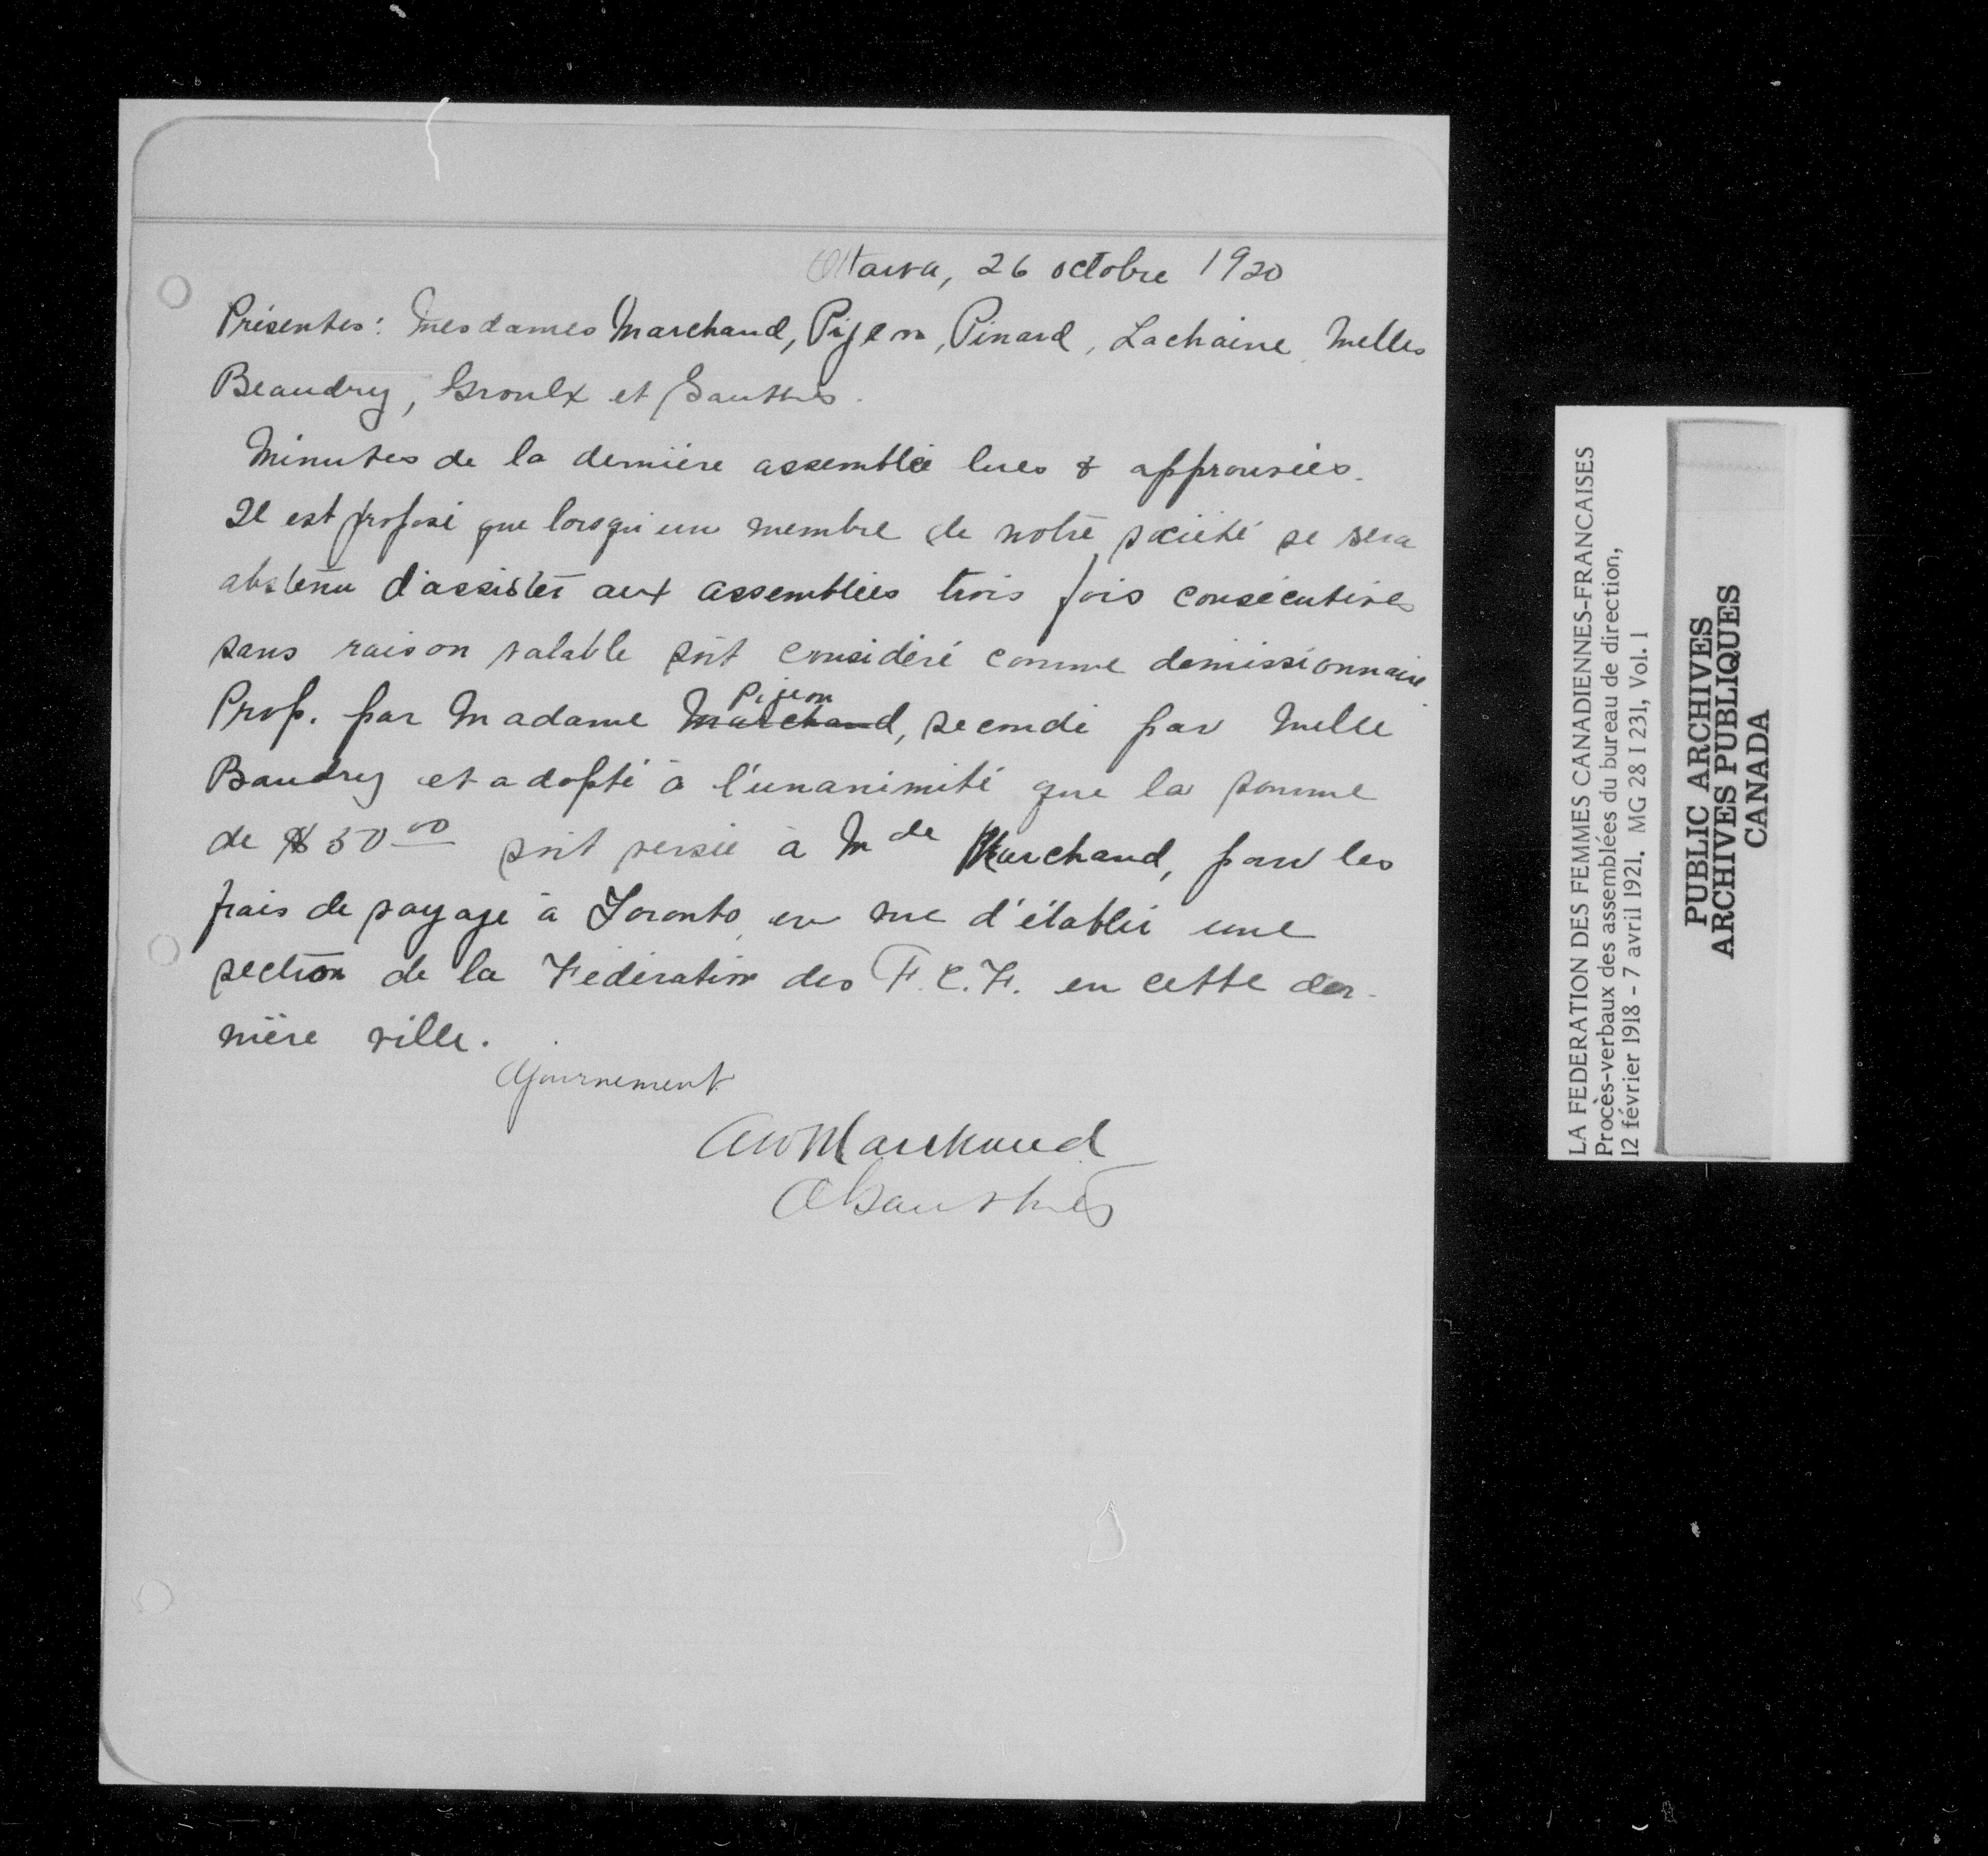 Ottawa, 26 octobre 1920
Présentes: Mesdames Marchand, Pijeon, Pinard, Lachaine, Melles
Beaudry, Groulx et Gauthier.
Minutes de la dernière assemblée lues & approuvées.
Il est proposé que lorsqu'un membre de notre société se sera
abstenu d'assister aux assemblées trois fois consécutives
sans raison valable soit considéré comme demissionnaire
Pijeon
Prop. par Madame Marchand, secondé par Melle
Baudry et adopté à l'unanimité que la somme
de $50.00 soit versée à Mde Marchand, pour les
frais de voyage à Toronto, en vue d'établir une
section de la Fédération des F.C.F. en cette der-
nière ville.
Ajournement
AW Marchand
A Gauthier
LA FEDERATION DES FEMMES CANADIENNES-FRANCAISES
Procès-verbaux des assemblées du bureau de direction,
12 février 1918 - 7 avril 1921. MG 28 I 231, Vol. 1
PUBLIC ARCHIVES
ARCHIVES PUBLIQUES
CANADA